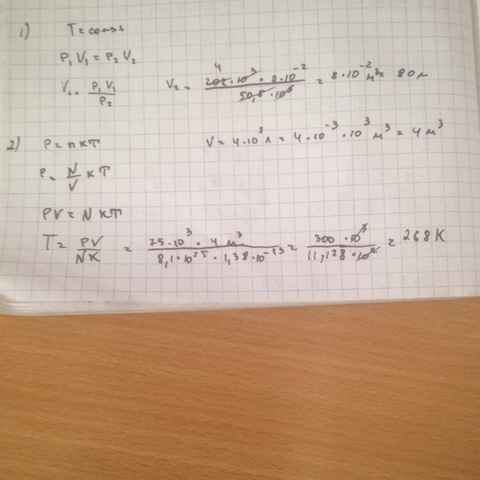 1) T = const
P₁ V₁ = P₂ V₂
V₂ = P₁ V₁ / P₂ V₂ = 202·10³ · 2·10⁻² / 50,5·10³ = 8·10⁻² м³ = 80 л
4
2) P = n k T V = 4·10³ л = 4·10⁻³ · 10³ м³ = 4 м³
P = N/V k T
PV = N k T
T = PV / NK = 75·10³ · 4 м³ / 8,1·10²⁵ · 1,38·10⁻²³ = 300·10³ / 11,178·10² = 268 K